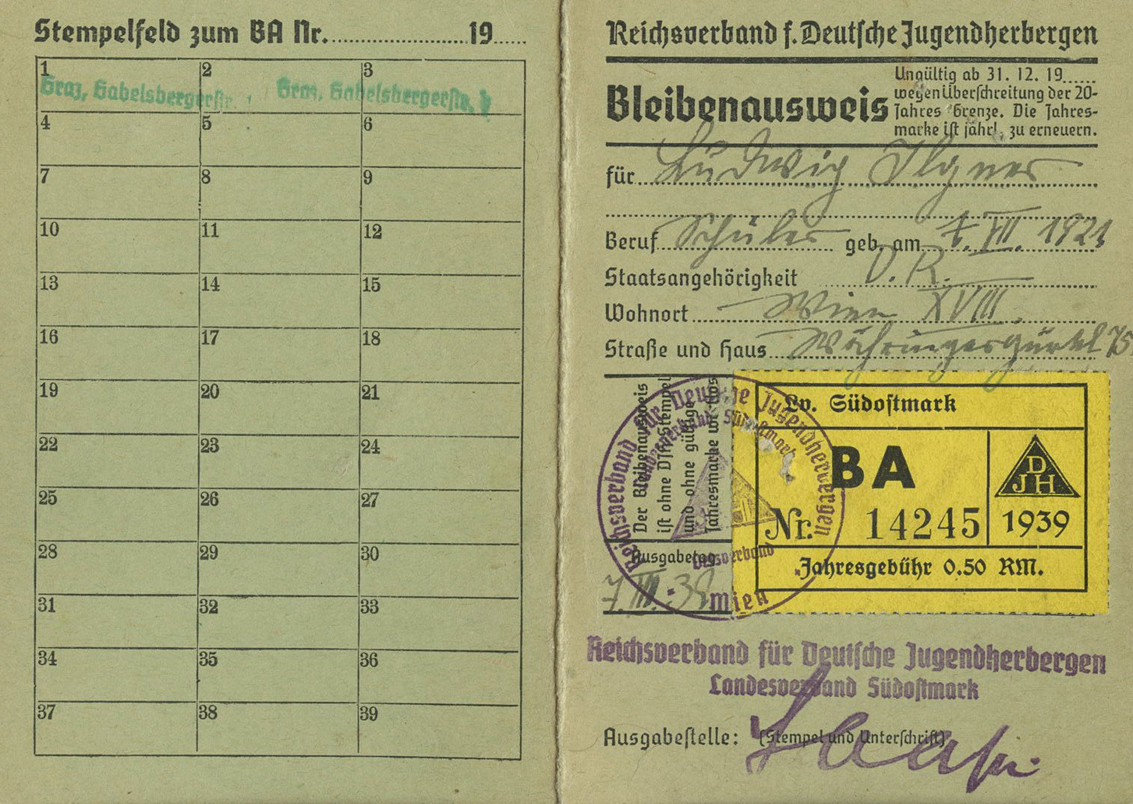 Stempelfeld zum BA Nr. 19
1 2 3
Graz, Gabelsbergerstr. 1 Graz, Gabelsbergerstr. 1
4 5 6
7 8 9
10 11 12
13 14 15
16 17 18
19 20 21
22 23 24
25 26 27
28 29 30
31 32 33
34 35 36
37 38 39
Reichsverband f. Deutsche Jugendherbergen
Bleibenausweis
Ungültig ab 31. 12. 19
wegen Überschreitung der 20-
Jahres Grenze. Die Jahres-
marke ist jährl. zu erneuern.
für Ludwig Ilgner
Beruf Schüler geb. am 7. VII. 1921
Staatsangehörigkeit D.R.
Wohnort Wien XVIII.
Straße und Haus Währingergürtel 75
Der Bleibenausweis
ist ohne Stempel
und ohne gültige
Jahresmarke wertlos
Reichsverband für Deutsche Jugendherbergen
Landesverband Südostmark
Wien
Ausgabetag
7. III. 39
Lv. Südostmark
BA
Nr. 14245
DJH
1939
Jahresgebühr 0.50 RM.
Reichsverband für Deutsche Jugendherbergen
Landesverband Südostmark
Ausgabestelle: (Stempel und Unterschrift)